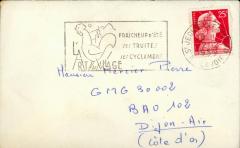 FRAICHEUR D'ÉTÉ
SES TRUITES
SES CYCLAMENS
25
Monsieur Mercier Pierre
GMG 30002
BAO 102
Dijon-Air
(Côte d'or)